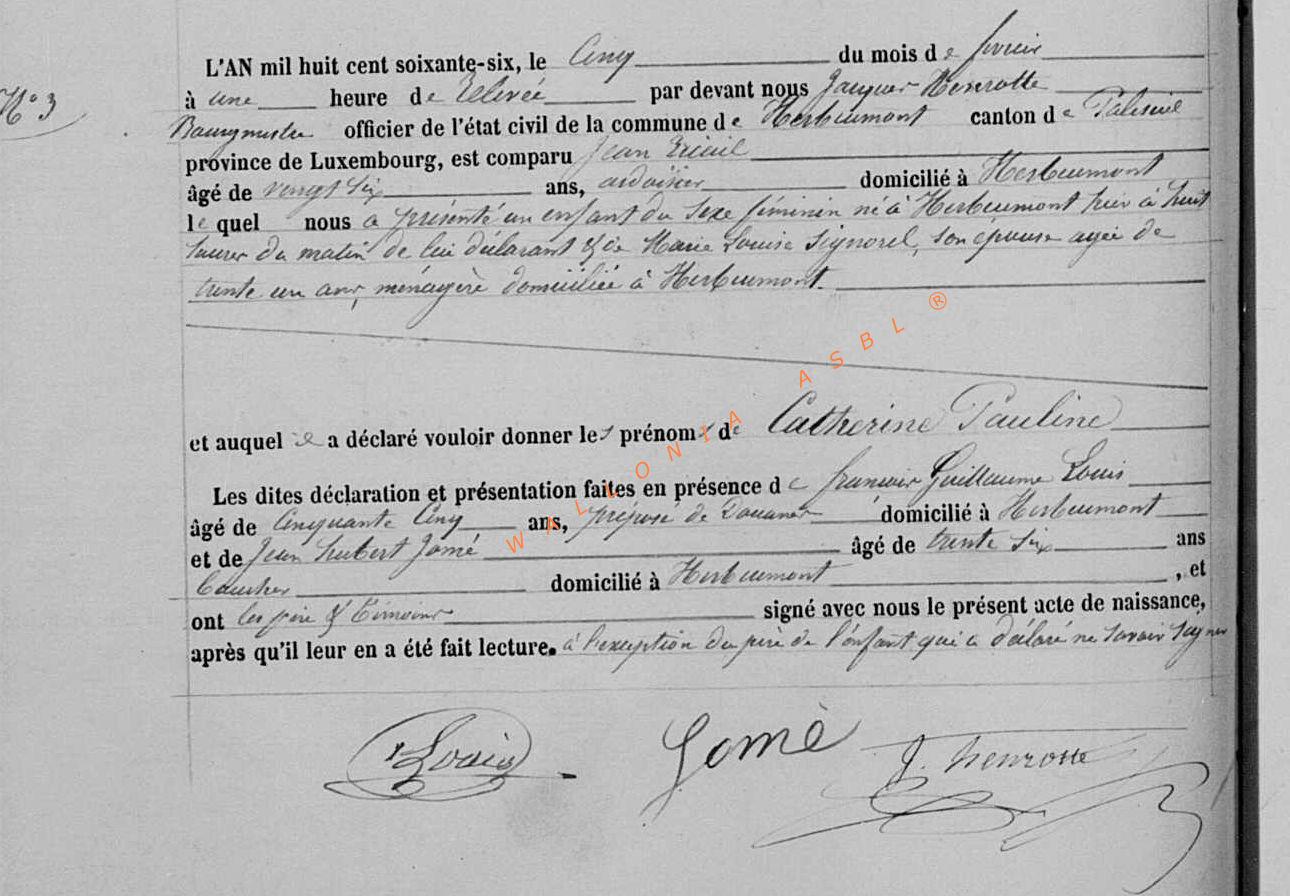 N° 3
L'AN mil huit cent soixante-six, le Cinq du mois de fevrier
à une heure de Relevée par devant nous Jacques Henrotte
Bourgmestre officier de l'état civil de la commune de Herbeumont canton de Paliseul
province de Luxembourg, est comparu Jean
âgé de vingt six ans, ardoisier domicilié à Herbeumont
lequel nous a présenté un enfant du sexe féminin né à Herbeumont hier à huit
heures du matin de lui déclarant & de Marie Louise Signorel, son épouse agée de
trente un ans, ménagère domiciliée à Herbeumont.
et auquel il a déclaré vouloir donner les prénoms de Catherine Pauline
Les dites déclaration et présentation faites en présence de francois Guillaume Louis
âgé de Cinquante Cinq ans, préposé de Douanes domicilié à Herbeumont
et de Jean hubert Jomé âgé de trente six ans
domicilié à Herbeumont, et
ont les père & témoins signé avec nous le présent acte de naissance,
après qu'il leur en a été fait lecture. à l'exception du père de l'enfant qui a déclaré ne savoir signer
Louis Jomé J. henrotte
WALLONIA ASBL ®